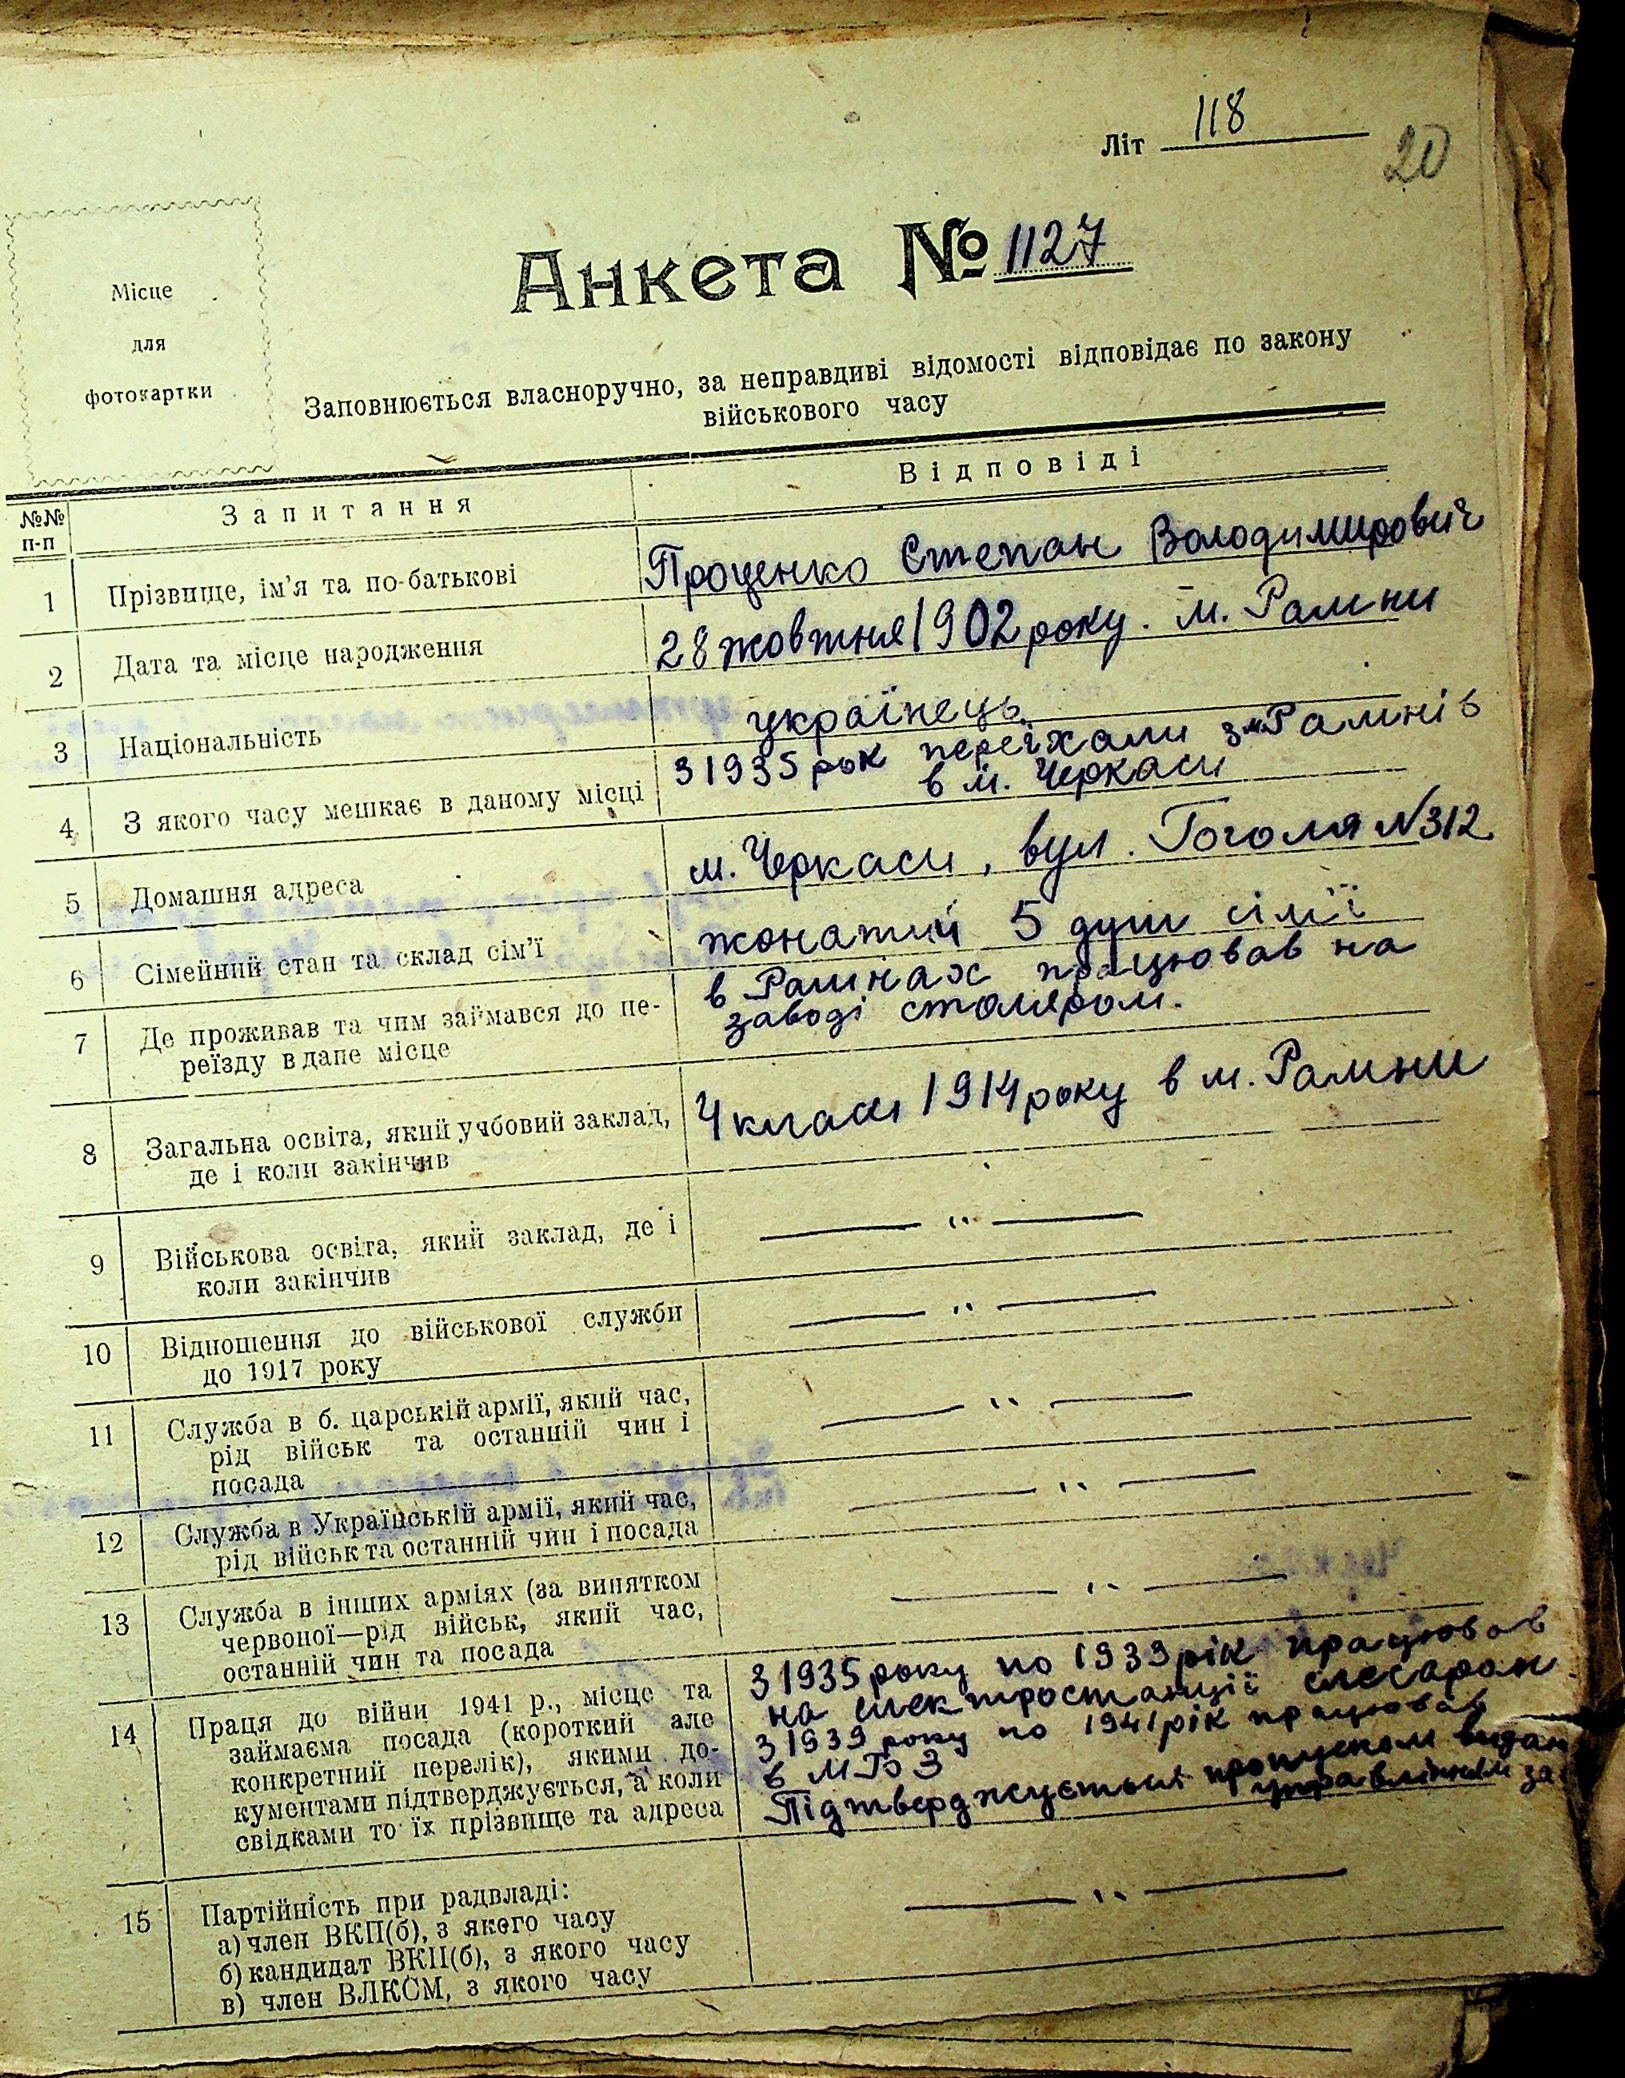 Літ 118
20
Місце
для
фотокартки
Анкета № 1127
Заповнюється власноручно, за неправдиві відомості відповідає по закону
військового часу
№№ п-п
Запитання
Відповіді
1
Прізвище, ім'я та по-батькові
Проценко Степан Володимирович
2
Дата та місце народження
28 жовтня 1902 року. м. Рамни
3
Національність
українець
4
З якого часу мешкає в даному місці
З 1935 рок переїхали з м Рамнів
в м. Черкаси
5
Домашня адреса
м. Черкаси, вул. Гоголя №312
6
Сімейний стан та склад сім'ї
жонатий 5 душ сім'ї
7
Де проживав та чим займався до пе-
реїзду в дане місце
в Рамнах працював на
заводі столяром.
8
Загальна освіта, який учбовий заклад,
де і коли закінчив
4 класи 1914 року в м. Рамни
9
Військова освіта, який заклад, де і
коли закінчив
— " —
10
Відношення до військової служби
до 1917 року
— " —
11
Служба в б. царській армії, який час,
рід військ та останній чин і
посада
— " —
12
Служба в Українській армії, який час,
рід військ та останній чин і посада
— " —
13
Служба в інших арміях (за винятком
червоної—рід військ, який час,
останній чин та посада
— " —
14
Праця до війни 1941 р., місце та
займаєма посада (короткий але
конкретний перелік), якими до-
кументами підтверджується, а коли
свідками то їх прізвище та адреса
З 1935 року по 1939 рік працював
на електростанції слесаром
З 1939 року по 1941 рік працював
в МТБЗ
Підтверджується пропуском видан
управлінням за
15
Партійність при радвладі:
а) член ВКП(б), з якого часу
б) кандидат ВКП(б), з якого часу
в) член ВЛКСМ, з якого часу
— " —